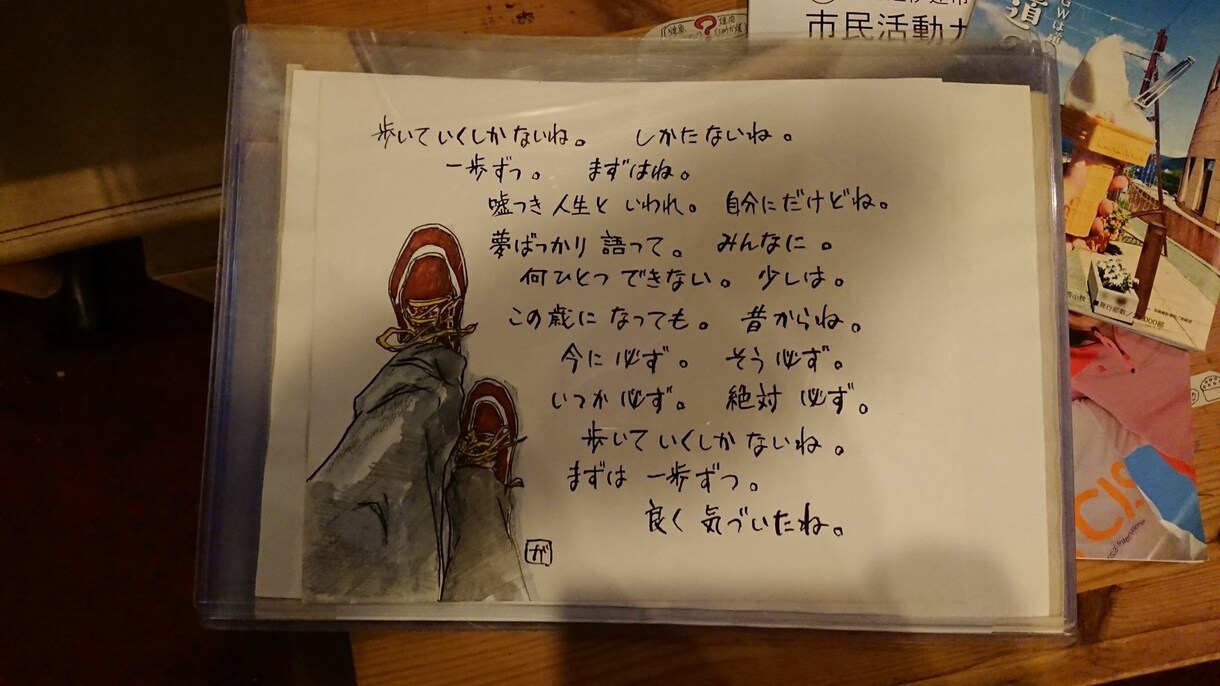 歩いていくしかないね。 しかたないね。
一歩ずつ。 まずはね。
嘘つき人生といわれ。 自分にだけどね。
夢ばっかり語って。 みんなに。
何ひとつできない。 少しは。
この歳になっても。 昔からね。
今に必ず。 そう必ず。
いつか必ず。 絶対必ず。
歩いていくしかないね。
まずは一歩ずつ。
良く気づいたね。
が
市民活動
道
GWは
CIS